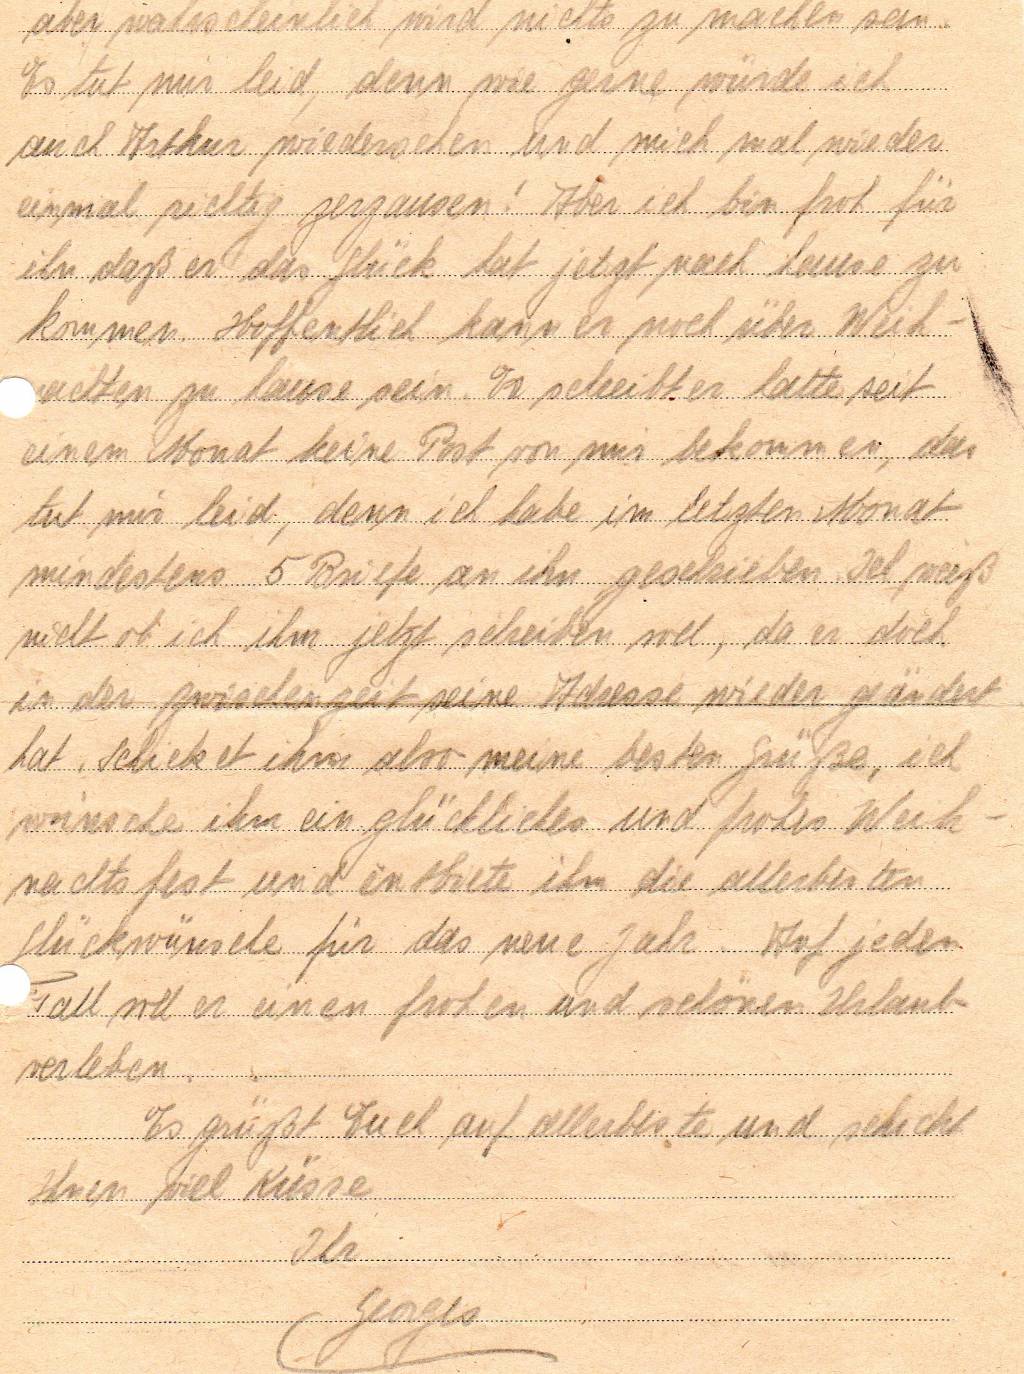 aber wahrscheinlich wird nichts zu machen sein.
Es tut mir leid, denn wie gerne würde ich
auch Arthur wiedersehen und mich mal wieder
einmal richtig zerzausen! Aber ich bin froh für
ihn daß er das Glück hat jetzt nach hause zu
kommen. Hoffentlich kann er noch über Weih-
nachten zu hause sein. Er schreibt er hätte seit
einem Monat keine Post von mir bekommen, das
tut mir leid, denn ich habe im letzten Monat
mindestens 5 Briefe an ihn geschrieben. Ich weiß
nicht ob ich ihm jetzt schreiben soll, da er doch
in der zwischenzeit seine Adresse wieder geändert
hat. Schicket ihm also meine besten Grüße, ich
wünsche ihm ein glückliches und frohes Weih-
nachtsfest und entbiete ihm die allerbesten
Glückwünsche für das neue Jahr. Auf jeden
Fall soll er einen frohen und schönen Urlaub
verleben.
Es grüßt Euch auf allerbeste und schickt
Ihnen viel Küsse
Ihr
Georges